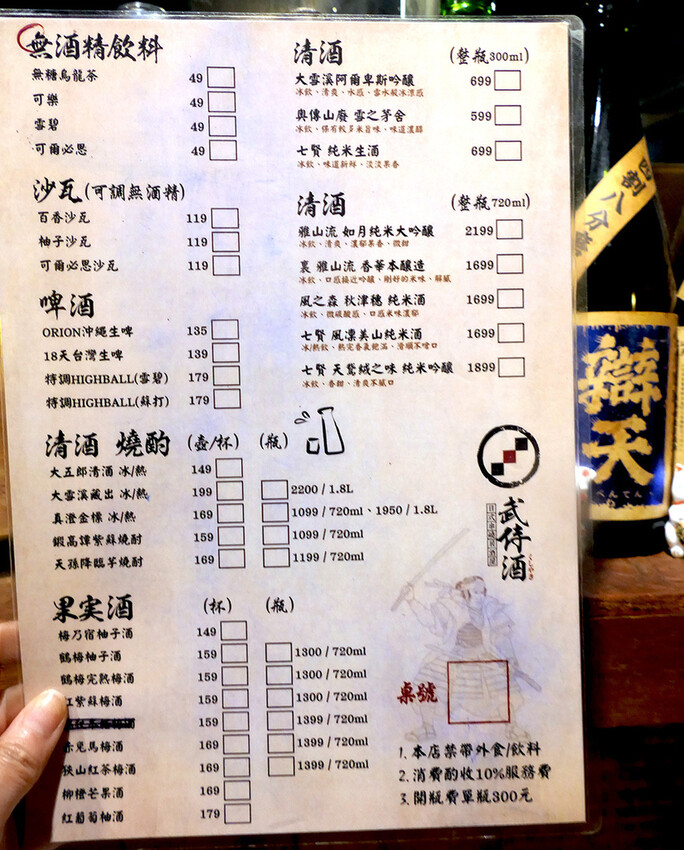 無酒精飲料
無糖烏龍茶 49
可樂 49
雪碧 49
可爾必思 49
沙瓦(可調無酒精)
百香沙瓦 119
柚子沙瓦 119
可爾必思沙瓦 119
啤酒
ORION沖繩生啤 135
18天台灣生啤 139
特調HIGHBALL(雪碧) 179
特調HIGHBALL(蘇打) 179
清酒 燒酌 (壺/杯) (瓶)
大五郎清酒 冰/熱 149
大雪溪藏出 冰/熱 199 2200 / 1.8L
真澄金標 冰/熱 169 1099 / 720ml、1950 / 1.8L
鍛高譚紫蘇燒酎 159 1099 / 720ml
天孫降臨芋燒酎 169 1199 / 720ml
果実酒 (杯) (瓶)
梅乃宿柚子酒 149
鶴梅柚子酒 159 1300 / 720ml
鶴梅完熟梅酒 159 1300 / 720ml
紅紫蘇梅酒 159 1300 / 720ml
159 1399 / 720ml
赤兎馬梅酒 169 1399 / 720ml
狹山紅茶梅酒 169 1399 / 720ml
柳橙芒果酒 169
紅葡萄柚酒 179
清酒 (整瓶300ml)
大雪溪阿爾卑斯吟釀 699
冰飲、清爽、水感、雪水般冰涼感
奧傳山廢 雪之茅舍 599
冰飲、保有較多米旨味、味道濃醇
七賢 純米生酒 699
冰飲、味道新鮮、淡淡果香
清酒 (整瓶720ml)
雅山流 如月純米大吟釀 2199
冰飲、清爽、濃郁果香、微甜
裏 雅山流 香華本釀造 1699
冰飲、口感接近吟釀、剛好的米味、解膩
風之森 秋津穗 純米酒 1699
冰飲、微碳酸感、口感米味濃郁
七賢 風凛美山純米酒 1699
冰/熱飲、熱完香氣飽滿、滑順不嗆口
七賢 天鵞絨之味 純米吟釀 1899
冰飲、香甜、清爽不膩口
武侍酒
日式串燒居酒屋
桌號
1. 本店禁帶外食/飲料
2. 消費酌收10%服務費
3. 開瓶費單瓶300元
四割八分
辯天
べんてん